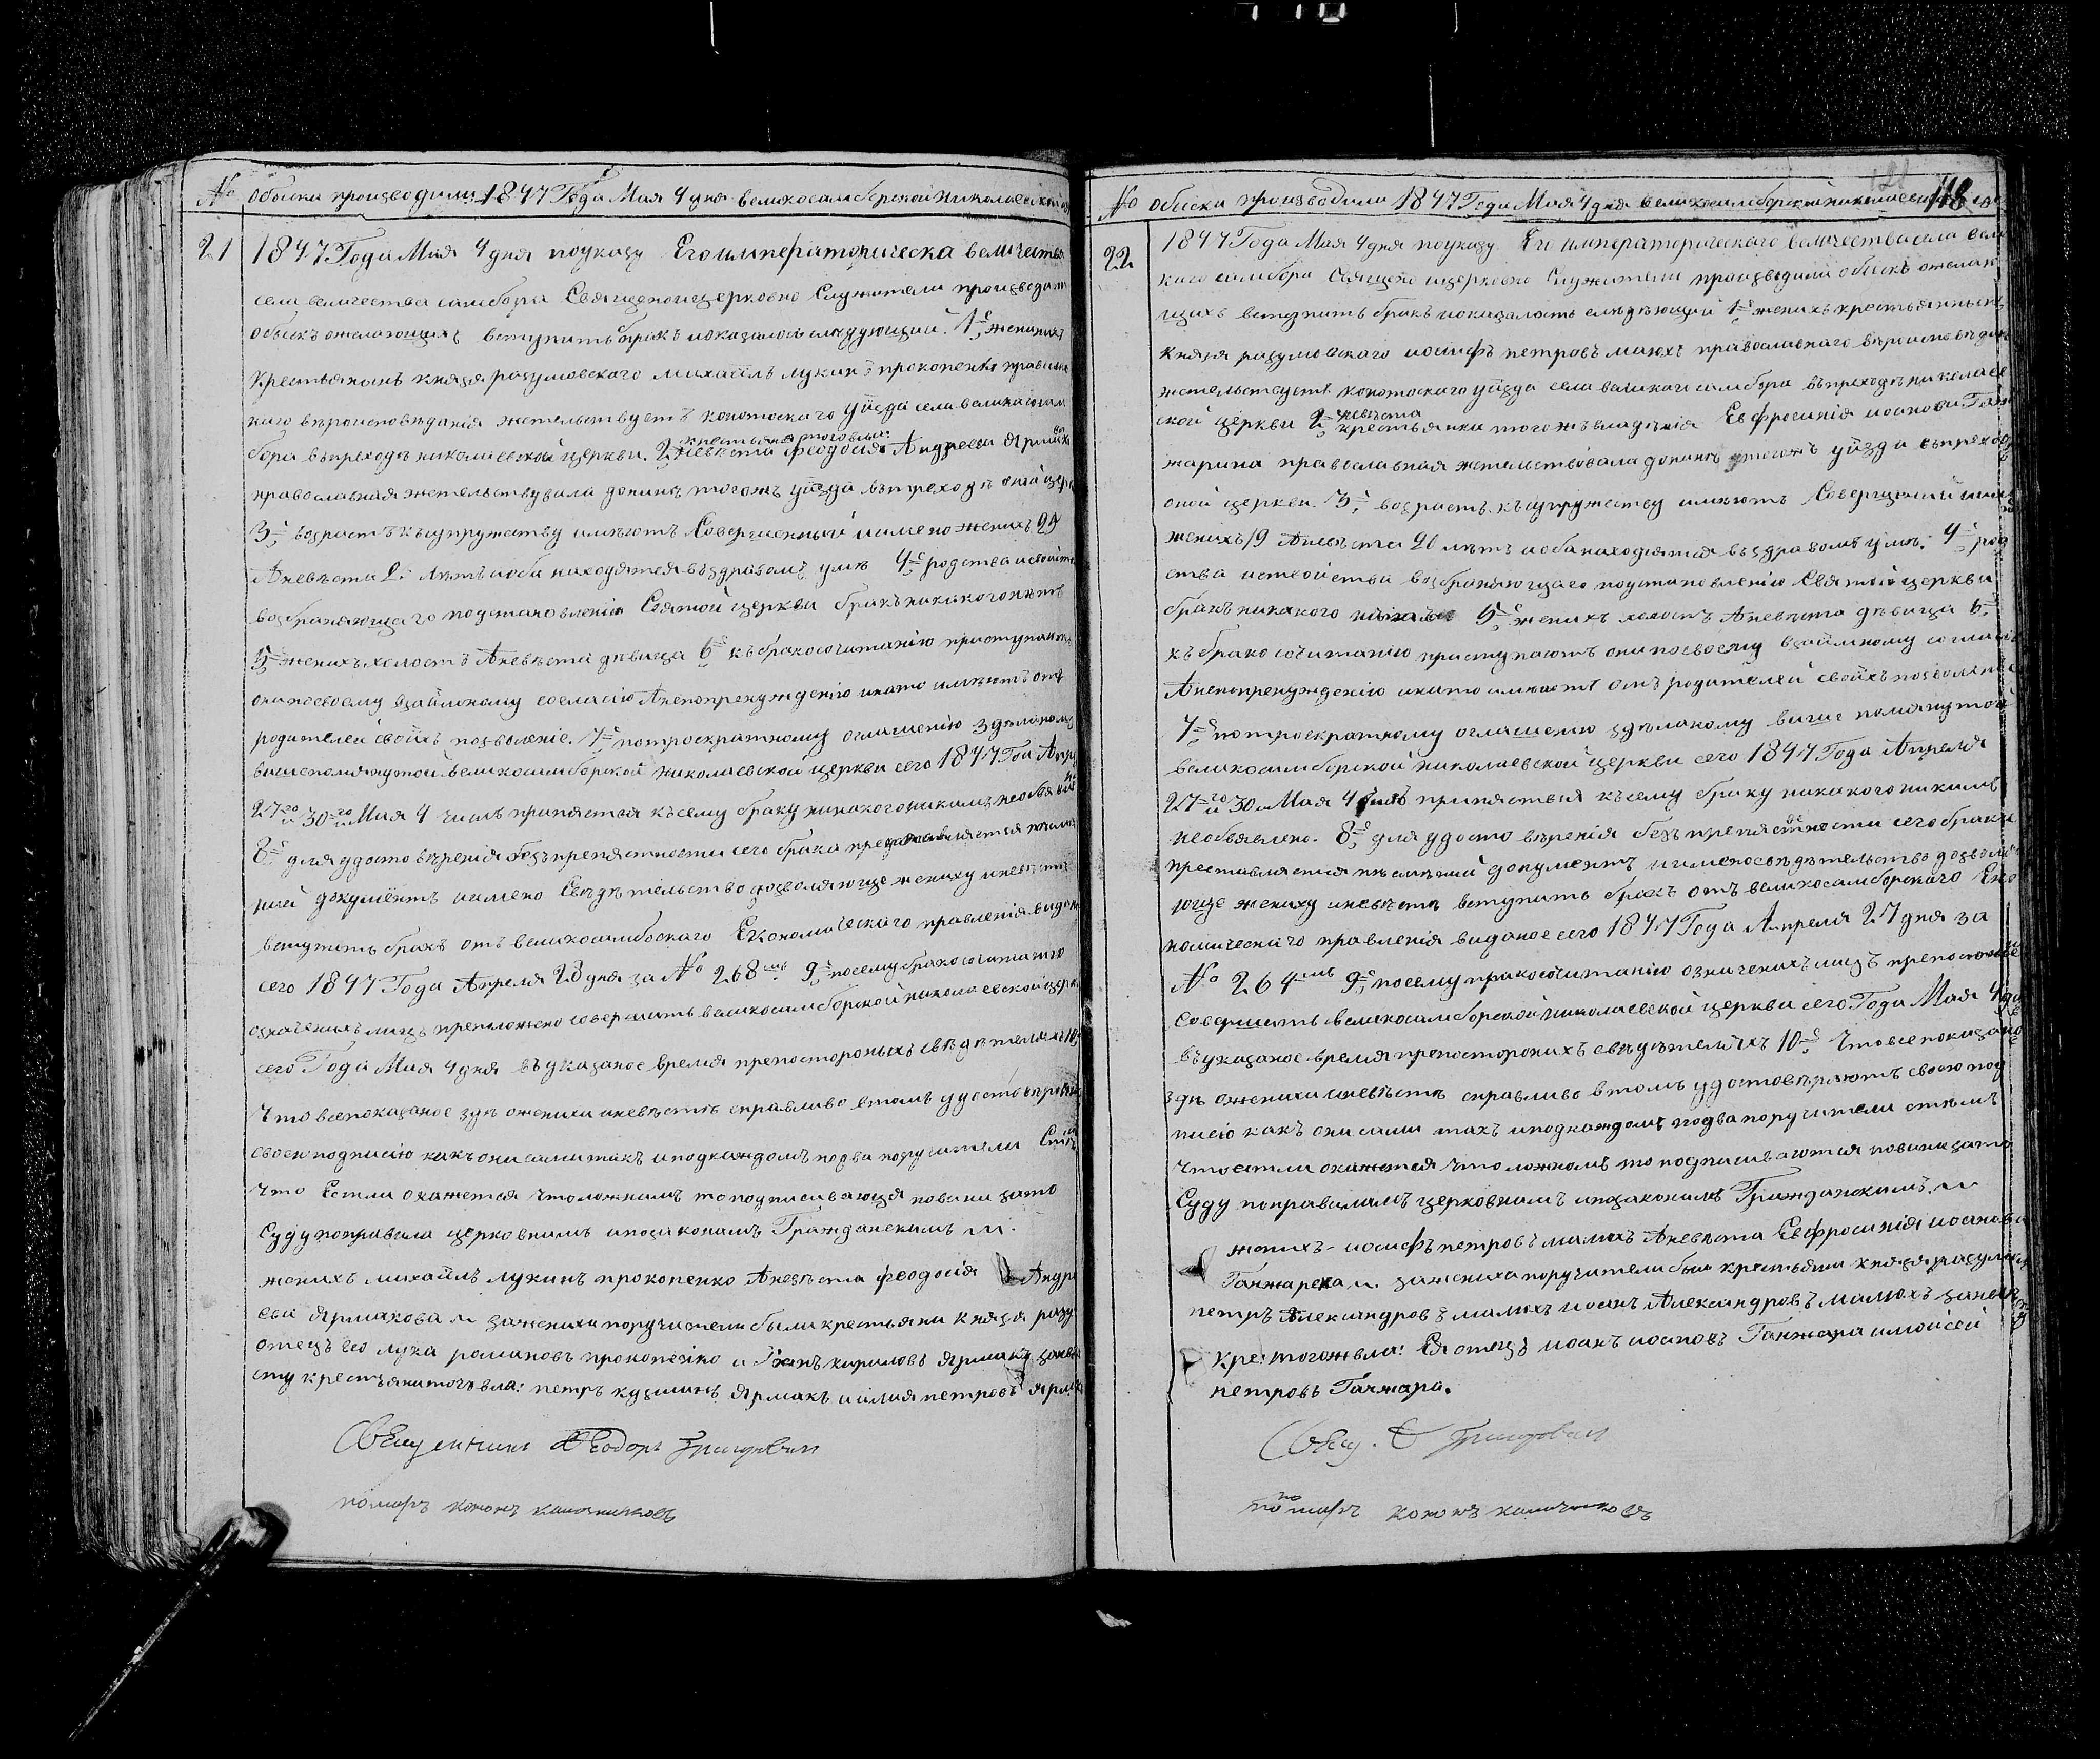 № обыски производили 1847 Года Мая 4 дня великосамборской николаевской
21 1847 Года Мая 4 дня поуказу Его императорическа величества
села величества самбора Священоицерковно Служители производили
обыскъ ожелающихъ вступить бракъ ипоказалось слѣдующий. 1е женихъ
Крестьянинъ князя разумовского михаилъ лукинъ прокопенко православ
наго вѣроисповѣданія жетельствуетъ конотоскаго уѣзда села великаго сам
бора въпреходѣ николаевской церкви. 2 невѣста феодосія Андреева Ярмакова
крестьянка тогожъ вла:
православная жетельствувала донинѣ тогожъ уѣзда въпреходѣ оной церк
3е возрастъ къцупружеству имѣютъ Совершенный иимено женихъ 22
Аневѣста лѣтъ иоба находятся въздравомъ умѣ 4е родства исвойства
возбраняющаго подстановленію Святой церкви бракъ никакого нѣтъ
5е женихъ холостъ Аневѣста дѣвица 6е къбракосочитанію приступаютъ
они посвоему взаймному согласію Анепопренуждению инато имѣютъ отъ
родителей свойхъ позволеніе. 7е потроекратному оглашенію здѣланому
вишепомянутой великосамборской николаевской церкви сего 1847 Год Апреля
27го и 30го и Мая 4 числъ припятствія късему браку никакого никимъ необявлено
8е для удостовѣренія безъ препятности сего брака представляется писмен
ний документъ иимено Свѣдѣтельство дозволяюще жениху иневѣстѣ
вступить бракъ отъ великосамбоскаго Економическаго правленія виданое
сего 1847 Года Апреля 23 дня за № 268имъ 9е посему бракосочитанію
означенихъ лицъ преположено совершить великосамборской николаевской церкви
сего Года Мая 4 дня въ указаное время препостороныхъ свѣдѣтеляхъ 10е
Что всепоказаное здѣ оженихи иневѣстѣ справливо втомъ удостовѣряютъ
своею подписію какъ они сами такъ иподкаждомъ подва поручители Стѣмъ
что Естли окажется чтоложнимъ то подписивающя повини зато
Суду поправила церковнимъ ипозаконамъ Гражданскимъ
женихъ михаилъ лукинъ прокопенко Аневѣста феодосія Андре
ева Ярмакова зажениха поручители были крестьяни князя разу
отецъ его лука романовъ прокопенко и Іоанъ кириловъ Ярмакъ заневѣ
сту крестъяни тогожъ вла: петръ кузминъ Ярмакъ иилия петровъ Ярмакъ
Священникъ Феодоръ Григорович
помарь кононъ
118
№ обыски производили 1847 Года Мая 4 дня великосамборской николаевской
22 1847 Года Мая 4 дня поуказу Его императорического величества села вели
каго самбора Священо ицерковно Служители производили обыскъ ожелаю
щихъ вступить бракъ ипоказалось слѣдующий 1е женихъ крестьянинъ
Князя разумовского иосифъ петровъ малюхъ православнаго вѣроисповѣданія
жетельствуетъ конотоского уѣзда села великаго самбора въпреходѣ николаев
ской церкви 2 невѣста крестьянка тогожъ владѣнія Евфросинія иоанова Ган
жарина православная жетельствовала донинѣ тогожъ уѣзда въпреходѣ
оной церкви. 3е возрастъ къцупружеству имѣютъ Совершеный иимено
женихъ 19 Аневѣста 20 лѣтъ иоба находятся въздравомъ умѣ. 4е род
ства исвойства возбраняющаго подстановленію Святой церкви
бракъ никакого 5е женихъ холостъ Аневѣста дѣвица 6е
къбракосочитанію приступаютъ они посвоему взаймному согласію
Анепопренуждению инато имѣютъ отъ родителей свойхъ позволеніе
7е потроекратному оглашенію здѣланому више помянутой
великосамборской николаевской церкви сего 1847 Года Апреля
27го и 30 и Мая 4 припятствія късему браку никакого никимъ
необявлено. 8е для удостовѣренія безъ препятственности сего брака
преставляется писменний документъ иимено свѣдѣтельство дозволя
юще жениху иневѣстѣ вступить бракъ отъ великосамборскаго Еко
номическаго правленія виданое сего 1847 Года Апреля 27 дня за
№ 264имъ 9е посему бракосочитанію означенихъ лицъ преположено
совершить великосамборской николаевской церкви сего Года Мая 4 дня
въуказаное время препосторонихъ свѣдѣтеляхъ 10е Что все показано
здѣ оженихи иневѣстѣ справливо втомъ удостовѣряютъ своею под
писію какъ они сами такъ иподкаждомъ подва поручители стѣмъ
что естли окажется что ложномъ то подписиваются повини зато
Суду поправиламъ церковнимъ ипозаконамъ Гражданскимъ.
женихъ иосифъ петровъ малюхъ Аневѣста Евфросинія иоанова
Ганжарева зажениха поручители были крестьяни князя разумов
петръ Александровъ малюхъ иоанъ Александровъ малюхъ заневѣ
кре: тогожъ вла: Ея отецъ иоанъ иоановъ Ганжара имойсей
петровъ Ганжара.
Свящ. Ѳ Григорович
помарь кононъ